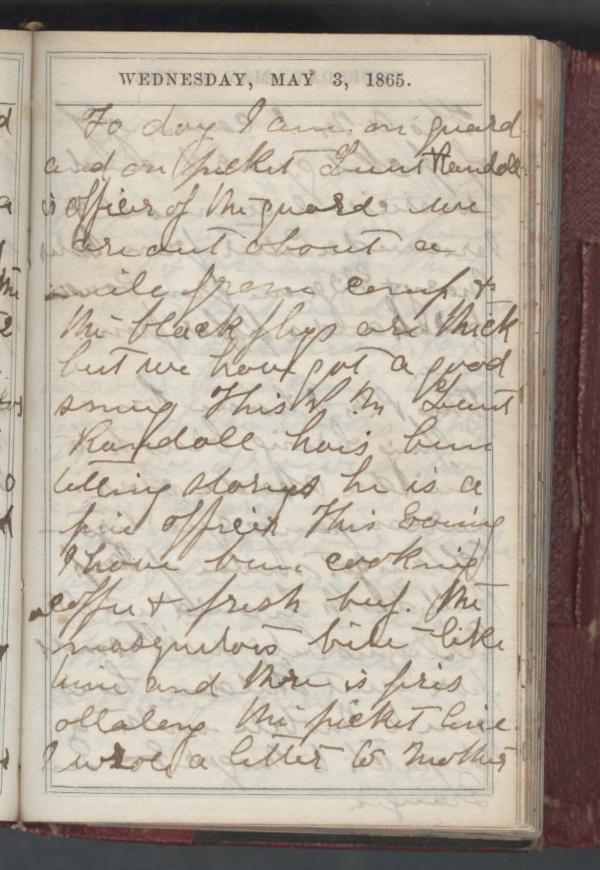 WEDNESDAY, MAY 3, 1865.
To day I am on guard
and on picket Lieut Randall
is officer of the guard we
are out about a
mile from camp &
the black flys are thick
but we have got a good
This P. M. Lieut
Randall hais been
telling storeys he is a
fine officer This Evening
I have been cooking
coffee & fresh beef. The
mosquitois bite like
time and there is firis
allalong the picket line.
I wrote a letter to Mother